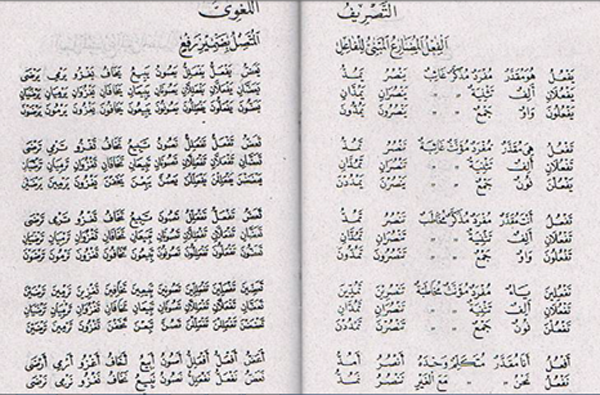 التصريف
الفعل المضارع المبني للفاعل
يفعل هو مقدر مفرد مذكر غائب ينصر يمد
يفعلان ألف تثنية " " ينصران يمدان
يفعلون واو جمع " " ينصرون يمدون
تفعل هي مقدر مفرد مؤنث غائبة تنصر تمد
تفعلان ألف تثنية " " تنصران تمدان
يفعلن نون جمع " " ينصرن يمددن
تفعل أنت مقدر مفرد مذكر مخاطب تنصر تمد
تفعلان ألف تثنية " " تنصران تمدان
تفعلون واو جمع " " تنصرون تمدون
تفعلين ياء مفرد مؤنث مخاطبة تنصرين تمدين
تفعلان ألف تثنية " " تنصران تمدان
تفعلن نون جمع " " تنصرن تمددن
أفعل أنا مقدر متكلم وحده أنصر أمد
نفعل نحن " " مع الغير ننصر نمد
اللغوي
المتصل بضمير رفع
يعض يصون يبيع يخاف يغزو يرمي يرضى
يعضان يصونان يبيعان يخافان يغزوان يرميان يرضيان
يعضون يصونون يبيعون يخافون يغزون يرمون يرضون
تعض تصون تبيع تخاف تغزو ترمي ترضى
تعضان تصونان تبيعان تخافان تغزوان ترميان ترضيان
يعضضن يصن يبعن يخفن يغزون يرمين يرضين
تعض تصون تبيع تخاف تغزو ترمي ترضى
تعضان تصونان تبيعان تخافان تغزوان ترميان ترضيان
تعضون تصونون تبيعون تخافون تغزون ترمون ترضون
تعضين تصونين تبيعين تخافين تغزين ترمين ترضين
تعضان تصونان تبيعان تخافان تغزوان ترميان ترضيان
تعضضن تصن تبعن تخفن تغزون ترمين ترضين
أعض أصون أبيع أخاف أغزو أرمي أرضى
نعض نصون نبيع نخاف نغزو نرمي نرضى